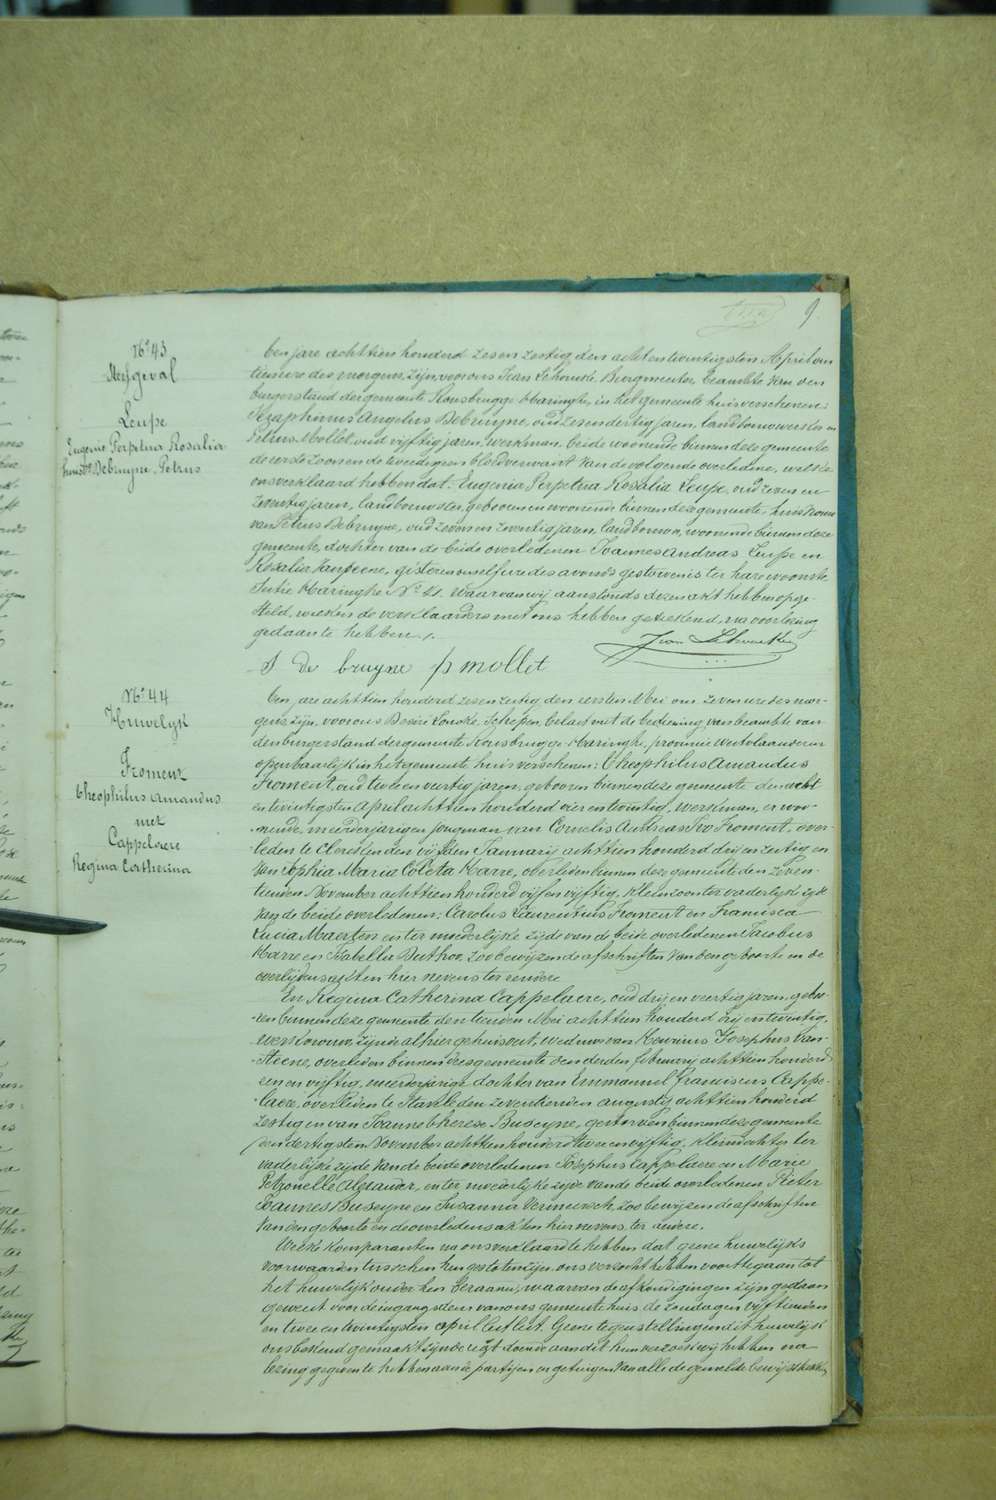 9
N° 43
Sterfgeval
Leupe
Eugenie Perpetua Rosalia
huisv. Debruyne, Petrus
Ten jare achttien honderd zes en zestig den acht en twintigsten April om
tien ure des morgens, zijn, voor ons Jean Burgmeester, Beambte van den
burgerstand der gemeente Rousbrugge-Haringhe, in het gemeente huis verschenen:
Seraphinus Angelus Debruyne, oud zes en dertig jaren, landbouwwerker en
Petrus Mollet, oud vijftig jaren, werkman, beide woonende binnen deze gemeente
de eerste zoon en de tweede geen bloedverwant van de volgende overledene, welke
ons verklaard hebben dat: Eugenia Perpetua Rosalia Leupe, oud zeven en
zeventig jaren, landbouwster, geboren en wonende binnen deze gemeente, huisvrouw
van Petrus Debruyne, oud zeven en zeventig jaren, landbouwer, woonende binnen deze
gemeente, dochter van de beide overledenen Joannes Andreas Leupe en
Rosalia, gisteren om elf ure des avonds gestorven is ter hare woonste
Sectie Haringhe N° 41. waarvan wij aanstonds dezen akt hebben opge-
steld, welken de verklaarders met ons hebben geteekend, na voorlezing
gedaan te hebben.
S De bruyne p mollet
N° 44
Huwelyk
Froment
Theophilus Amandus
met
Cappelaere
Regina Catherina
Ten jare achttien honderd zes en zestig den eersten Mei om zeven ure des mor-
gens, zijn, voor ons, Schepen, belast met de bediening van beambte van
den burgerstand der gemeente Rousbrugge-Haringhe, provincie Westvlaanderen
openbaarlijk in het gemeente huis verschenen: Theophilus Amandus
Froment, oud twee en veertig jaren, geboren binnen deze gemeente den acht
en twintigsten April achttien honderd vier en twintig, werkman, er woo-
nende, meerderjarigen jongman van Cornelis Andreas Ivo Froment, over-
leden te den vijfden January achttien honderd drij en zestig en
van Sophia Maria Coleta Harre, overleden binnen deze gemeente den zeven-
tienden November achttien honderd vijf en vijftig, kleinzoon ter vaderlijke zijde
van de beide overledenen: Carolus Laurentius Froment en Francisca
Lucia Maerten en ter moederlijke zijde van de beide overledenen Jacobus
Harre en Isabella, zoo bewijzen de afschriften van den geboorte en de
overlijdensakten hier nevens ter rendere
En Regina Catherina Cappelaere, oud drij en veertig jaren, gebo-
ren binnen deze gemeente den tienden Mei achttien honderd drij en twintig,
werkvrouw, zijnde alhier gehuisvest, weduwe van Henricus Josephus Van-
steene, overleden binnen deze gemeente den derden february achttien honderd
een en vijftig, meerderjarige dochter van Emmanuel Franciscus Cappe-
laere, overleden te Stavele den zeventienden augusty achttien honderd
zestig en van Joanne Therese Buseyne, gestorven binnen deze gemeente
den dertigsten November achttien honderd twee en vijftig, kleindochter ter
vaderlijke zijde van de beide overledenen Josephus Cappelaere en Marie
Petronelle, en ter moederlijke zijde van de beide overledenen Pieter
Joannes Buseyne en Susanna Vermeersch, zoo bewijzen de afschriften
van den geboorte en de overlijdensakten hier nevens ter rendere.
Welke komparanten na ons verklaard te hebben dat geene huwelijks
voorwaarden tusschen hen gesloten zijn, ons verzocht hebben voort te gaan tot
het huwelijk onder hen beraamd, waarvan de afkondigingen zijn gedaan
geweest voor de ingangsdeur van ons gemeente huis de zondagen vijftienden
en twee en twintigsten april lestleden. Geene tegenstelling in dit huwelijk
ons bekend gemaakt zijnde, regt doende aan dit hun verzoek wij hebben na
lezing gegeven te hebben aan de partijen en getuigen van alle de gemelde bewijsstukken